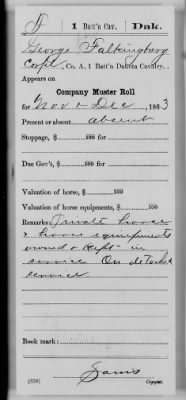 F | 1 Batt'n Cav. | Dak.
George Falkingburg
Corpl, Co. A, 1 Batt'n Dakota Cavalry.
Appears on
Company Muster Roll
for Nov & Dec, 1863
Present or absent absent
Stoppage, $ 100 for
Due Gov't, $ 100 for
Valuation of horse, $ 100
Valuation of horse equipments, $ 100
Remarks: Private horse
& horse equipments
owned & kept in
service On detached
service
Book mark:
(359)
Copyist.